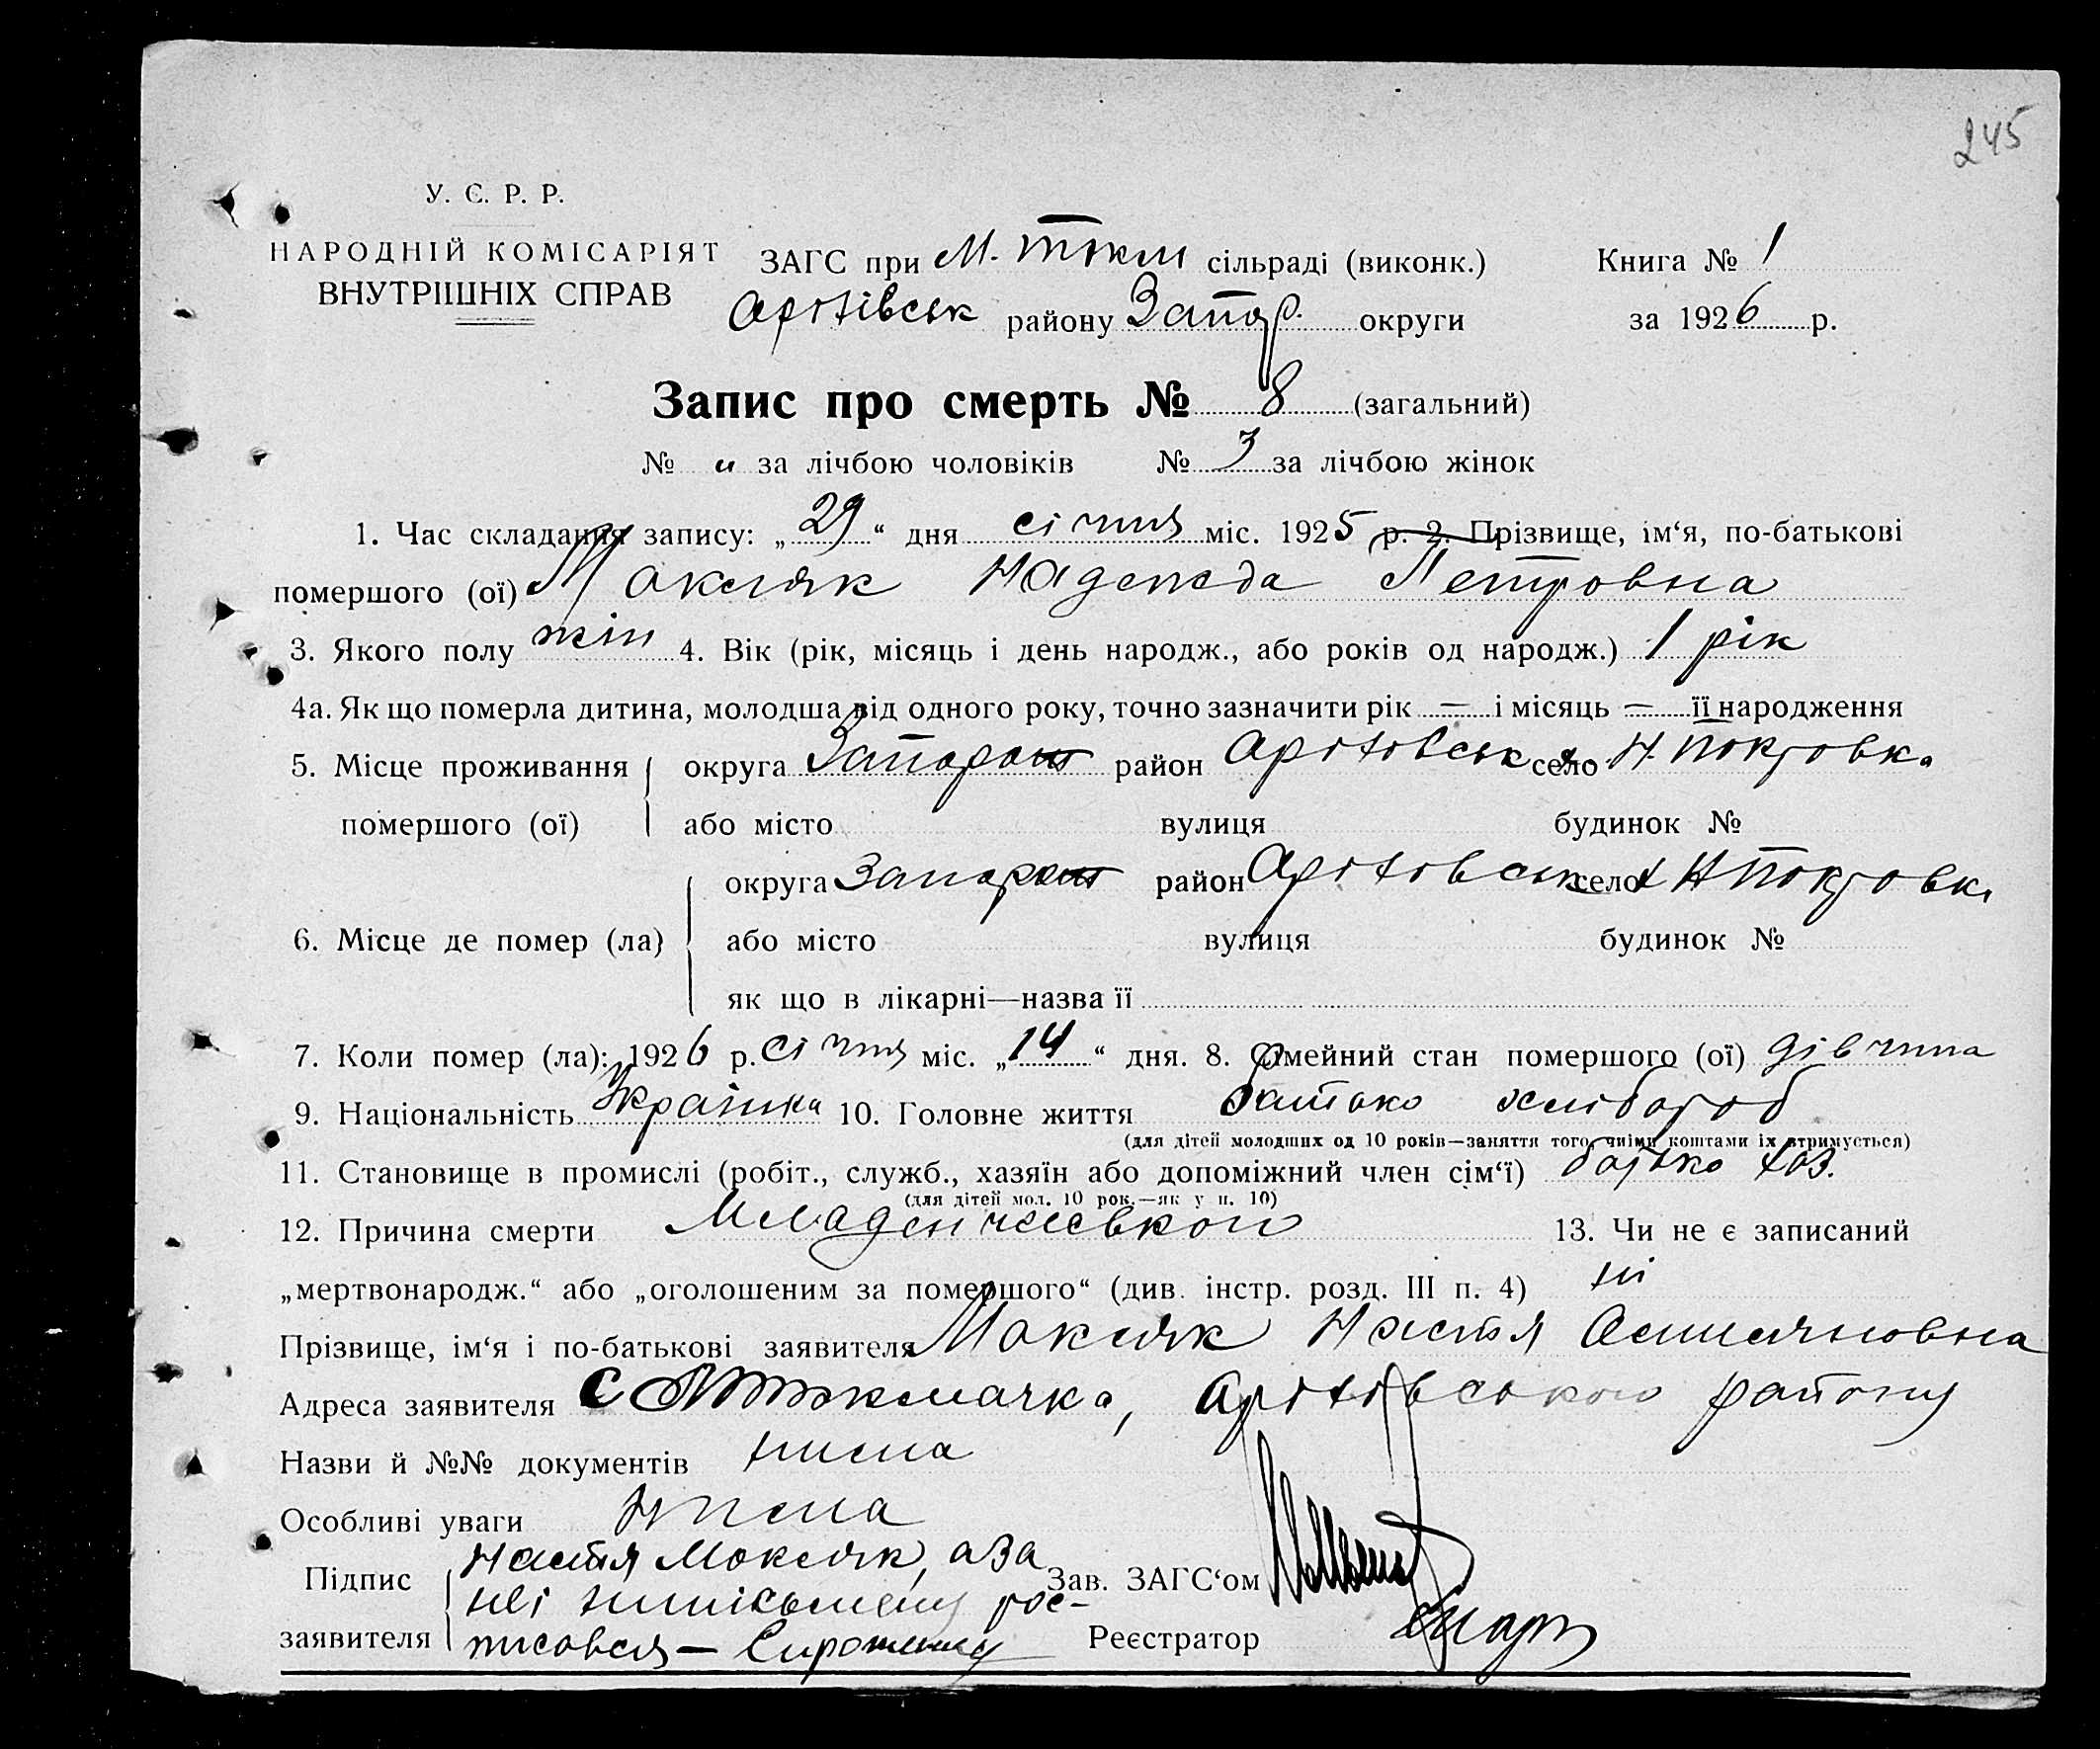 245
У. Є. Р. Р.
НАРОДНІЙ КОМІСАРІЯТ
ВНУТРІШНІХ СПРАВ
ЗАГС при М. Токм сільраді (виконк.)
Книга № 1
Оріхівськ району Запор. округи
за 1926 р.
Запис про смерть № 8 (загальний)
№ и за лічбою чоловіків № 3 за лічбою жінок
1. Час складання запису: „29“ дня січня міс. 1925 р. 2. Прізвище, ім‘я, по-батькові
помершого (ої) Мокляк Надежда Петровна
3. Якого полу жін 4. Вік (рік, місяць і день народж., або років од народж.) 1 рік
4а. Як що померла дитина, молодша від одного року, точно зазначити рік — і місяць — її народження
5. Місце проживання округа Запорож район Оріховськ село Н. Покровка
помершого (ої) або місто вулиця будинок №
округа Запорож район Оріховськ село Н Покровк
6. Місце де помер (ла) або місто вулиця будинок №
як що в лікарні—назва її
7. Коли помер (ла): 1926 р. січня міс. „14“ дня. 8. Сімейний стан помершого (ої) дівчина
9. Національність Українка 10. Головне життя батько хлібороб
(для дітей молодших од 10 років—заняття того, чиїми коштами їх втримується)
11. Становище в промислі (робіт., служб., хазяїн або допоміжний член сім‘ї) батько хаз.
(для дітей мол. 10 рок.—як у п. 10)
12. Причина смерти 13. Чи не є записаний
„мертвонародж.“ або „оголошеним за помершого“ (див. інстр. розд. III п. 4) ні
Прізвище, ім‘я і по-батькові заявителя Мокляк Настя
Адреса заявителя с М Токмачка, Оріхівського району
Назви й №№ документів нима
Особливі уваги нима
Підпис Настя Мокляк, а за
Зав. ЗАГС‘ом
неі нипісьмену рос-
заявителя писовся —
Реєстратор